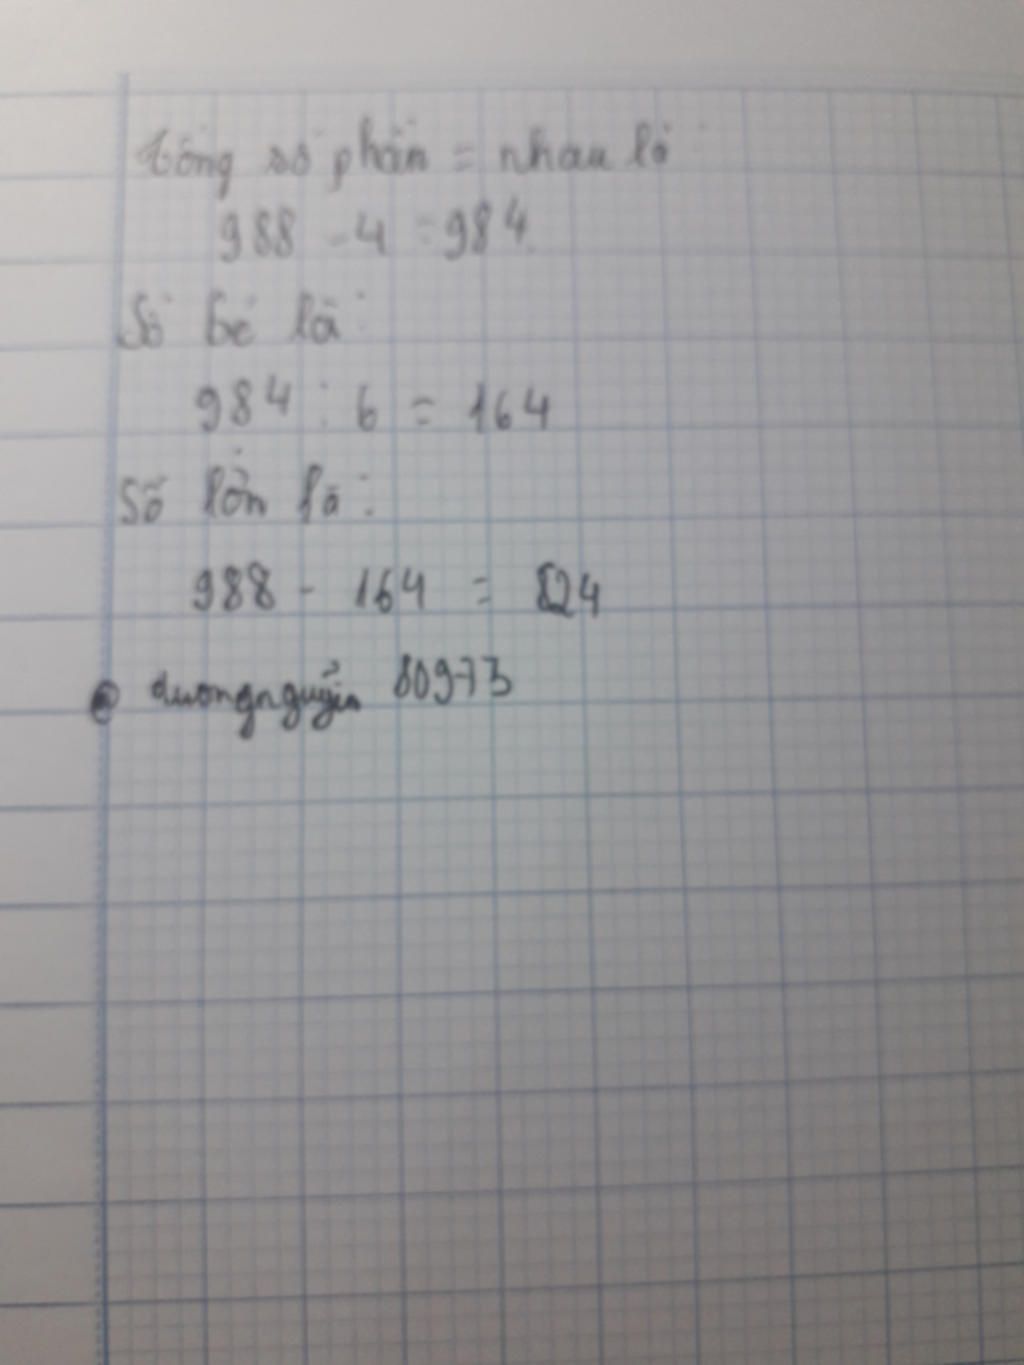 tổng số phần = nhau là:
988 - 4 = 984
Số bé là:
984 : 6 = 164
Số lớn là:
988 - 164 = 824
@ duongnguyễn 80973